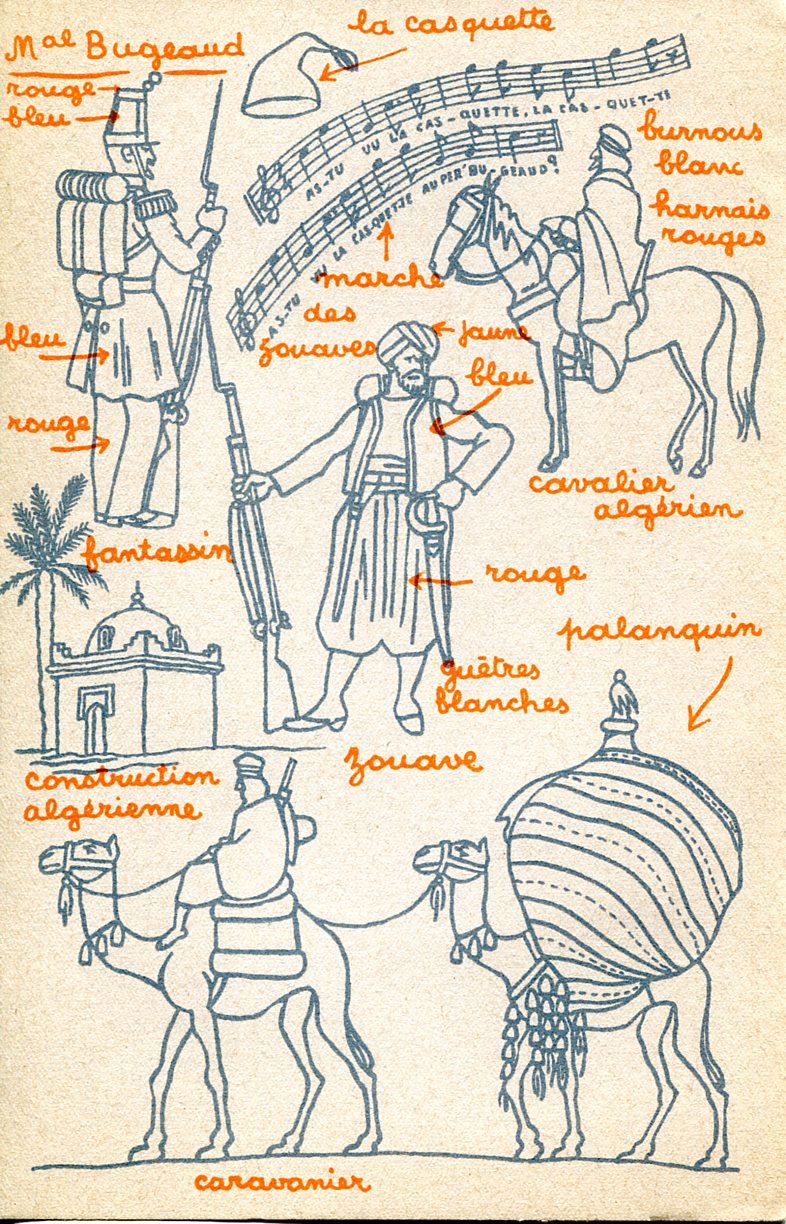 Mal Bugeaud
la casquette
rouge
bleu
AS-TU VU LA CAS-QUETTE, LA CAS-QUET-TE
AS-TU VU LA CASQUETTE AU PER' BU-GEAUD?
burnous
blanc
harnais
rouges
marche
des
zouaves
jaune
bleu
bleu
rouge
cavalier
algérien
fantassin
rouge
palanquin
guêtres
blanches
zouave
construction
algérienne
caravanier